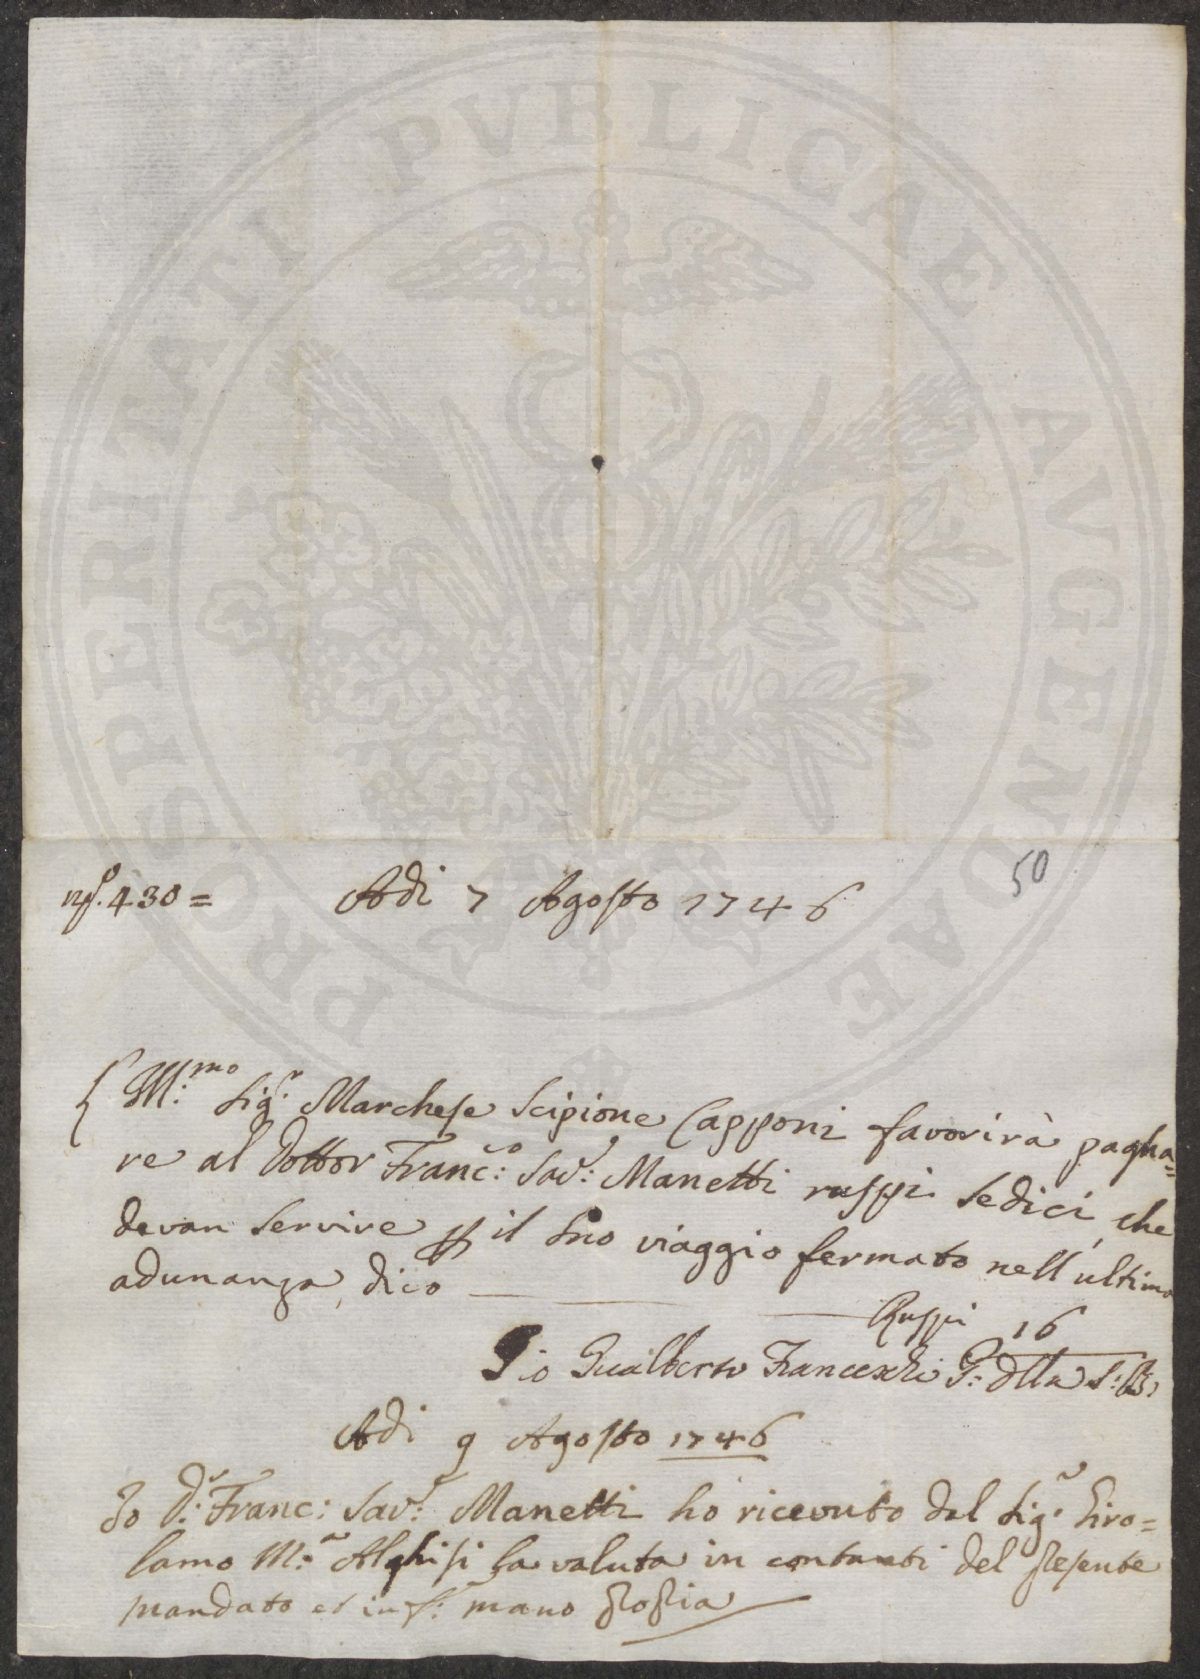 PROSPERITATI PVBLICAE AVGENDAE
50
N.º 430 = Adi 7 Agosto 1746
Ill:mo Sig:r Marchese Scipione Capponi favorirà pagha=
re al Dottor Franc:o Sav:o Manetti ruspi sedici, che
devan servire p il suo viaggio fermato nell'ultima
adunanza, dico
Ruspi 16
Gio Gualberto Franceschi P: dlla S: B:
Adi 9 Agosto 1746
Io D:r Franc: Sav:o Manetti ho ricevuto dal Sig:r Giro=
lamo M:a Alghisi la valuta in contanti del presente
mandato et in mano propria